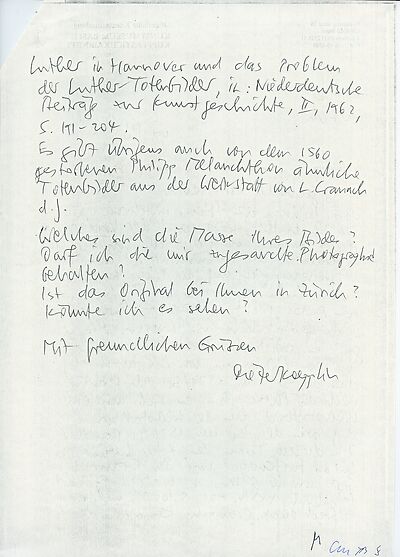 Luther in Hannover und das Problem
der Luther-Totenbilder, in: Niederdeutsche
Beiträge zur Kunstgeschichte, II, 1962,
S. 191-204.
Es gibt übrigens auch von dem 1560
gestorbenen Philipp Melanchthon ähnliche
Totenbilder aus der Werkstatt von L. Cranach
d. J.
Welches sind die Masse Ihres Bildes?
Darf ich die mir zugesandte Photographie
behalten?
Ist das Original bei Ihnen in Zürich?
Könnte ich es sehen?
Mit freundlichen Grüssen
Dieter Koepplin